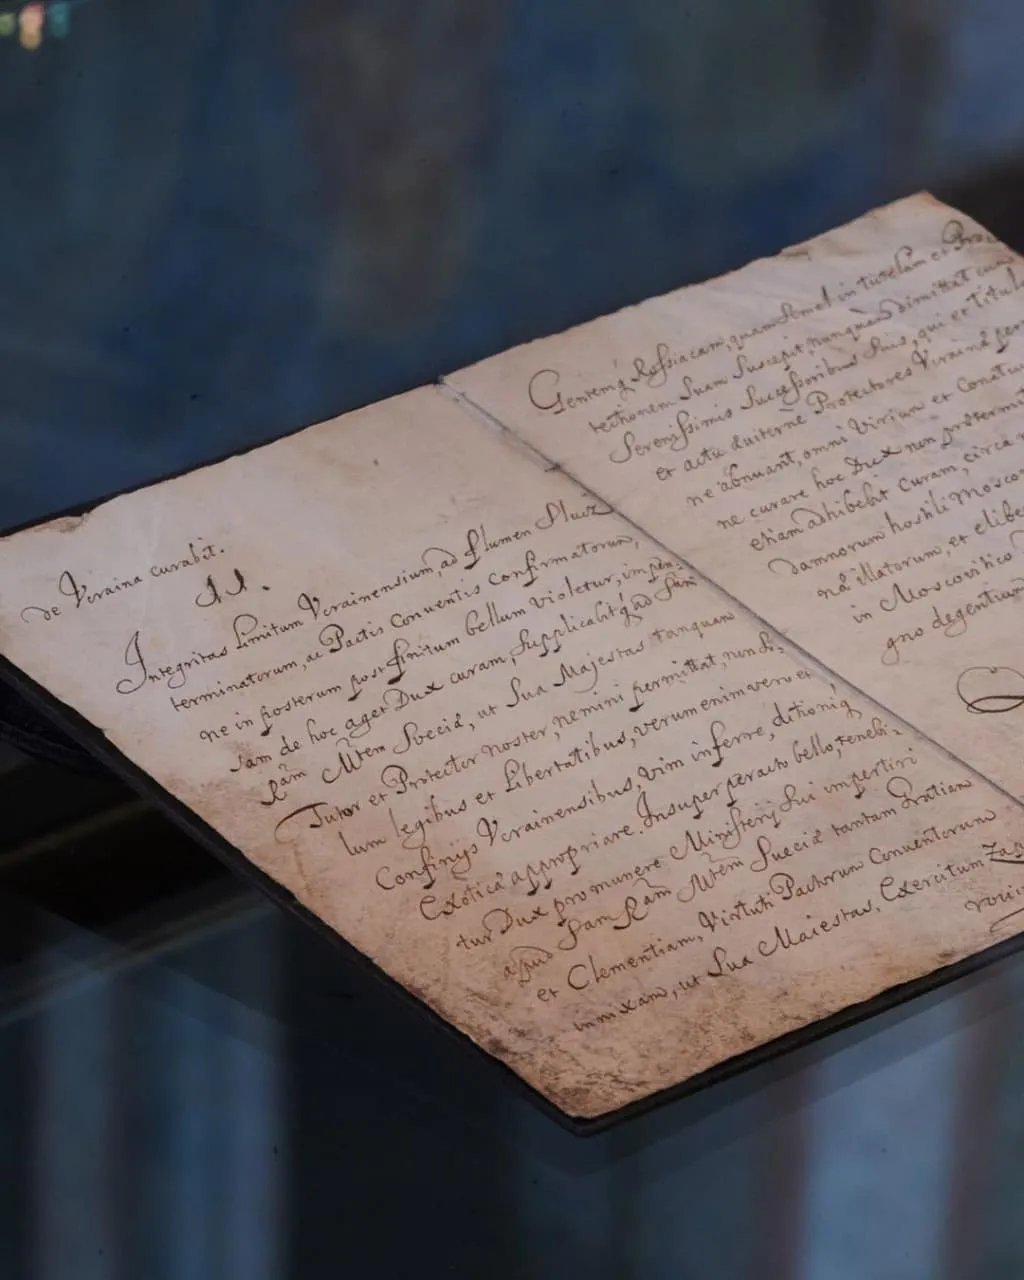 de Vcraina curabit.
II.
Integritas Limitum Vcrainensium, ad flumen Slucz
terminatorum, ac Pactis Conventis Confirmatorum,
ne in posterum post finitum bellum violetur, impen-
sam de hoc aget Dux curam, supplicabitq; ad Sam
Rām Mtem Sveciæ, ut Sua Majestas tanquam
Tutor et Protector noster, nemini permittat, non So-
lum legibus et Libertatibus, verumenimvero et
Confinijs Vcrainensibus, vim inferre, ditioniq;
Exoticæ appropriare. Insuper peracto bello, tenebi-
tur Dux pro munere Ministerij Sui impertiri
apud Sam Rām Mtem Sueciæ tantam Gratiam
et Clementiam, Virtuti Pactorum Conventorum
innixam, ut Sua Maiestas, Exercitum Zapo
roui
Gentemq; Rossiacam, quam Semel in tutelam et Pro
tectionem Suam Suscepit, nunquam dimittat cum
Serenissimis Successoribus Suis, qui et titulo
et actu æuiternè Protectores Vcrainæ
ne abnuant, omni Virium et
ne curare hoc Dux non prætermit
etiam adhibebit Curam, circa
damnorum hostili Mosco
nâ illatorum, et
in Moscovitico
gno degentium